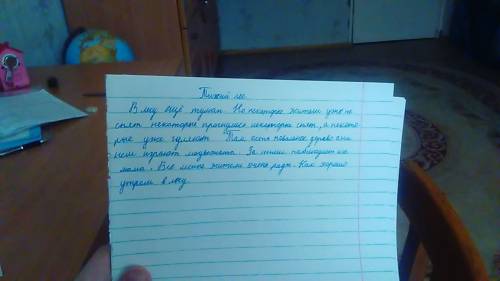 Тихий лес.
В лесу ещё туман. Но некоторые жители уже не
спят, некоторые проснулись некоторые спят, а некото
рые уже гуляют. Там есть поваленое дерево она
нём играют медвежата. За ними наблюдает их
мама. Все лесные жители очень рады. Как хорошо
утром в лесу.